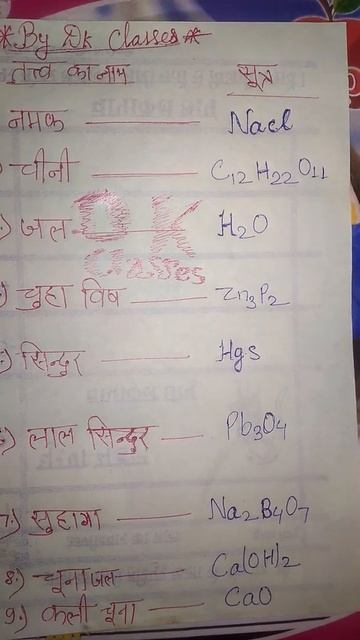 *By Dk Classes*
तत्व का नाम सूत्र
नमक Nacl
चीनी C12H22O11
जल H2O
DK
Classes
चुहा विष Zn3P2
सिन्दुर Hgs
लाल सिन्दुर Pb3O4
7.) सुहागा Na2B4O7
8.) चूना जल Ca(OH)2
9.) कली चूना CaO